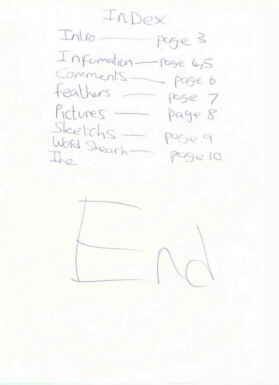 InDex
Intro — page 3
Infomation — page 4,5
Comments — page 6
feathers — page 7
Pictures — page 8
Sketchs — page 9
Word Shearh — page 10
The
End